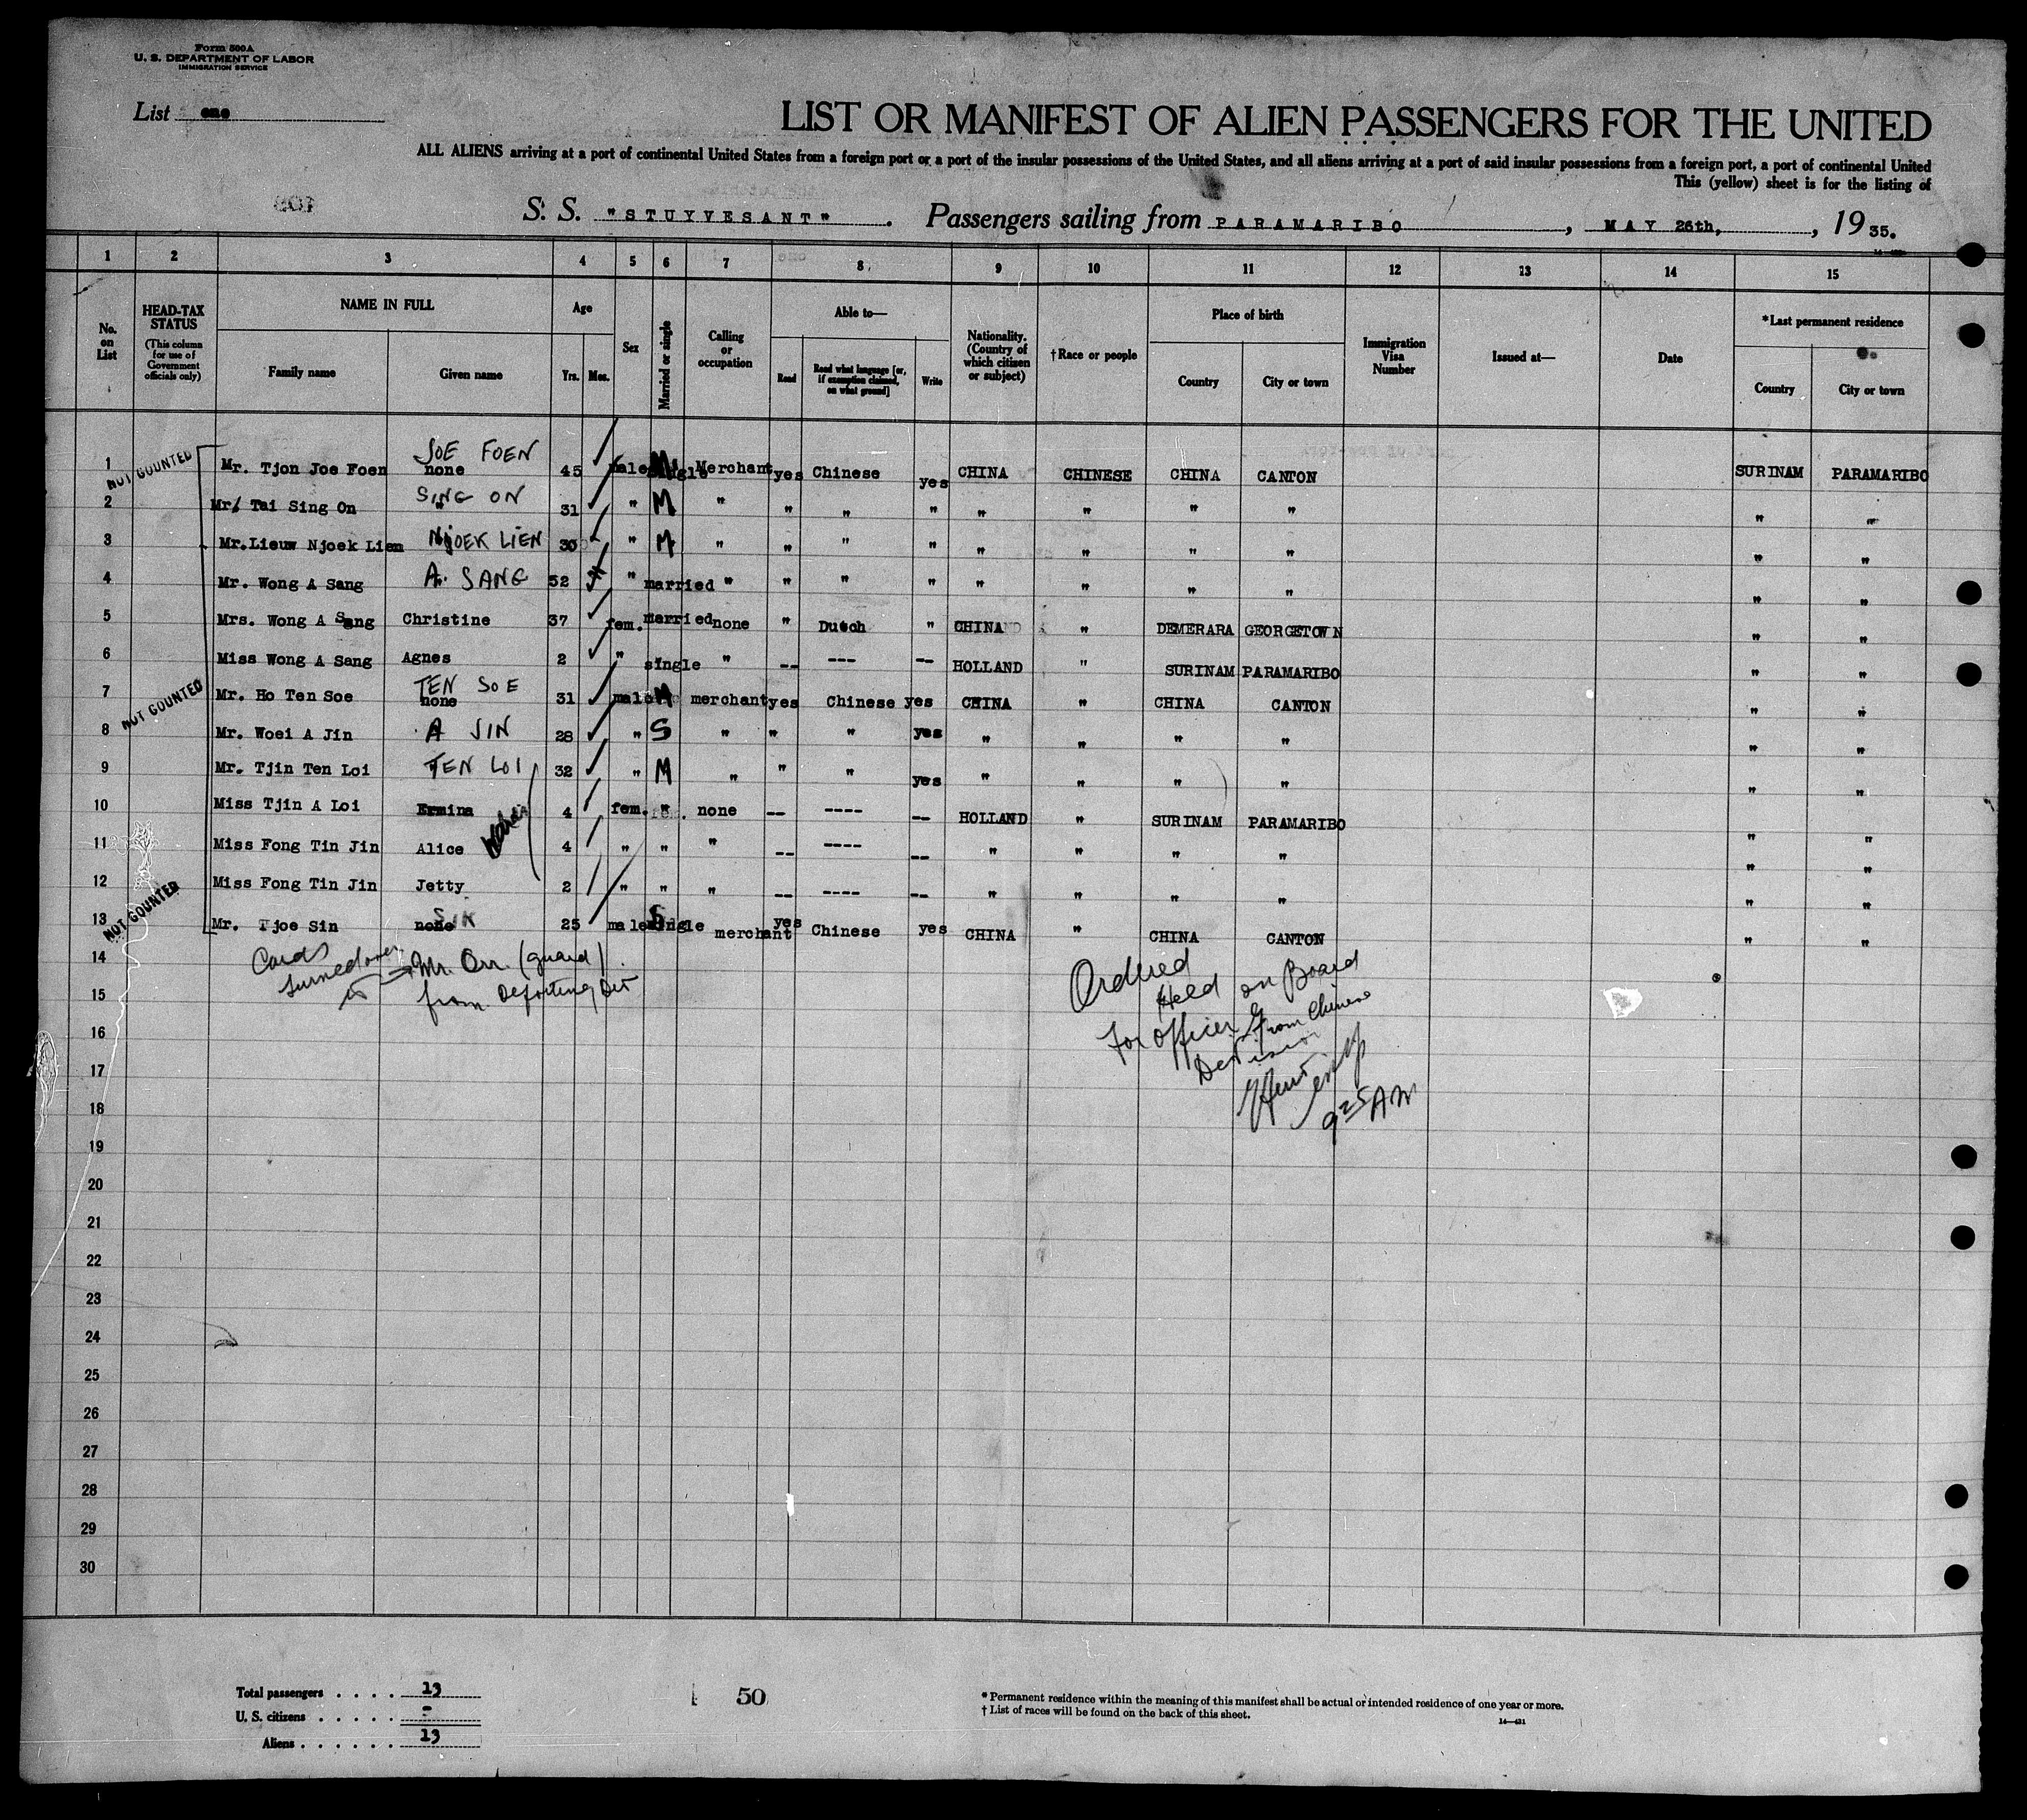 Form 500A
U. S. DEPARTMENT OF LABOR
IMMIGRATION SERVICE
List one
LIST OR MANIFEST OF ALIEN PASSENGERS FOR THE UNITED
ALL ALIENS arriving at a port of continental United States from a foreign port or a port of the insular possessions of the United States, and all aliens arriving at a port of said insular possessions from a foreign port, a port of continental United
This (yellow) sheet is for the listing of
S. S. "STUYVESANT". Passengers sailing from PARAMARIBO, MAY 26th, 1935.
1 2 3 4 5 6 7 8 9 10 11 12 13 14 15
No. on List
HEAD-TAX STATUS (This column for use of Government officials only)
NAME IN FULL
Family name
Given name
Age
Yrs. Mos.
Sex
Married or single
Calling or occupation
Able to—
Read
Read what language [or, if exemption claimed, on what ground]
Write
Nationality. (Country of which citizen or subject)
†Race or people
Place of birth
Country
City or town
Immigration Visa Number
Issued at—
Date
*Last permanent residence
Country
City or town
1 NOT COUNTED Mr. Tjon Joe Foen none JOE FOEN 45 male single M Merchant yes Chinese yes CHINA CHINESE CHINA CANTON SURINAM PARAMARIBO
2 Mr. Tai Sing On " SING ON 31 " M " " " " " " " " " "
3 Mr.Lieuw Njoek Lien NJOEK LIEN 30 " M " " " " " " " " " "
4 Mr. Wong A Sang A. SANG 52 " married " " " " " " " " " "
5 Mrs. Wong A Sang Christine 37 fem. married none " Dutch " CHINA " DEMERARA GEORGETOWN " "
6 Miss Wong A Sang Agnes 2 " single " -- --- -- HOLLAND " SURINAM PARAMARIBO " "
7 NOT COUNTED Mr. Ho Ten Soe none TEN SOE 31 male M merchant yes Chinese yes CHINA " CHINA CANTON " "
8 Mr. Woei A Jin A JIN 28 " S " " " yes " " " " " "
9 Mr. Tjin Ten Loi TEN LOI 32 " M " " " yes " " " " " "
10 Miss Tjin A Loi Ermina 4 fem. " none -- ---- -- HOLLAND " SURINAM PARAMARIBO " "
11 Miss Fong Tin Jin Alice 4 " " " -- ---- -- " " " " " "
12 Miss Fong Tin Jin Jetty 2 " " " -- ---- -- " " " " " "
13 NOT COUNTED Mr. Tjoe Sin none SIN 25 male single S merchant yes Chinese yes CHINA " CHINA CANTON " "
14 Cards turned over to Mr. Orr. (guard)
15 from Deporting Div
Ordered
Held on Board
For Officer from Chinese
Division
9 25 AM
16
17
18
19
20
21
22
23
24
25
26
27
28
29
30
Total passengers . . . . 13
U. S. citizens . . . . . -
Aliens . . . . . . 13
50
* Permanent residence within the meaning of this manifest shall be actual or intended residence of one year or more.
† List of races will be found on the back of this sheet.
14—431